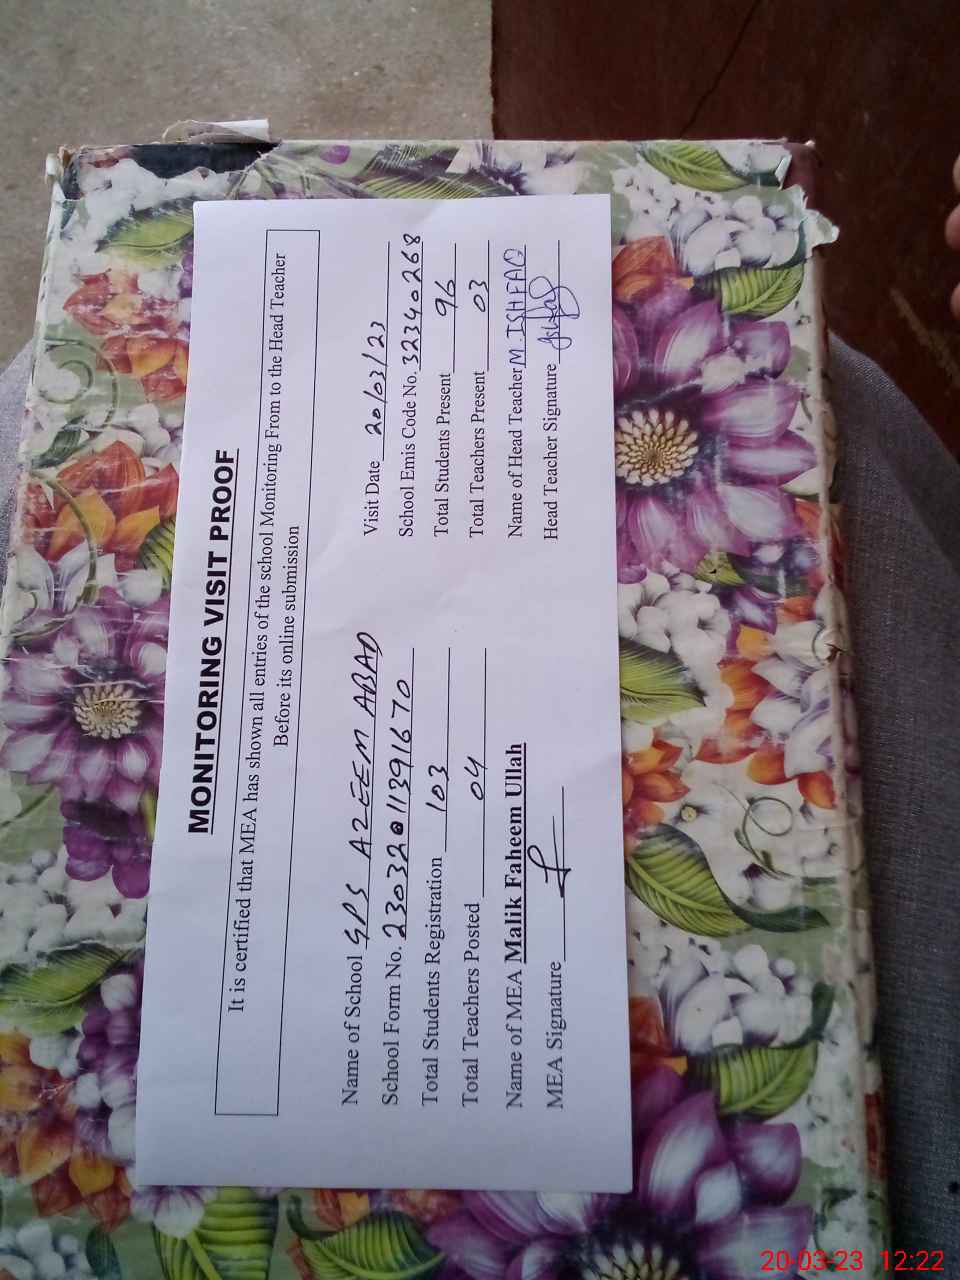 MONITORING VISIT PROOF
It is certified that MEA has shown all entries of the school Monitoring From to the Head Teacher
Before its online submission
Name of School GPS AZEEM ABAD Visit Date 20/03/23
School Form No. 2303320113391670 School Emis Code No. 32340268
Total Students Registration 103 Total Students Present 96
Total Teachers Posted 04 Total Teachers Present 03
Name of MEA Malik Faheem Ullah Name of Head Teacher M. ISHFAQ
MEA Signature Head Teacher Signature Ishfaq
20-03-23 12:22